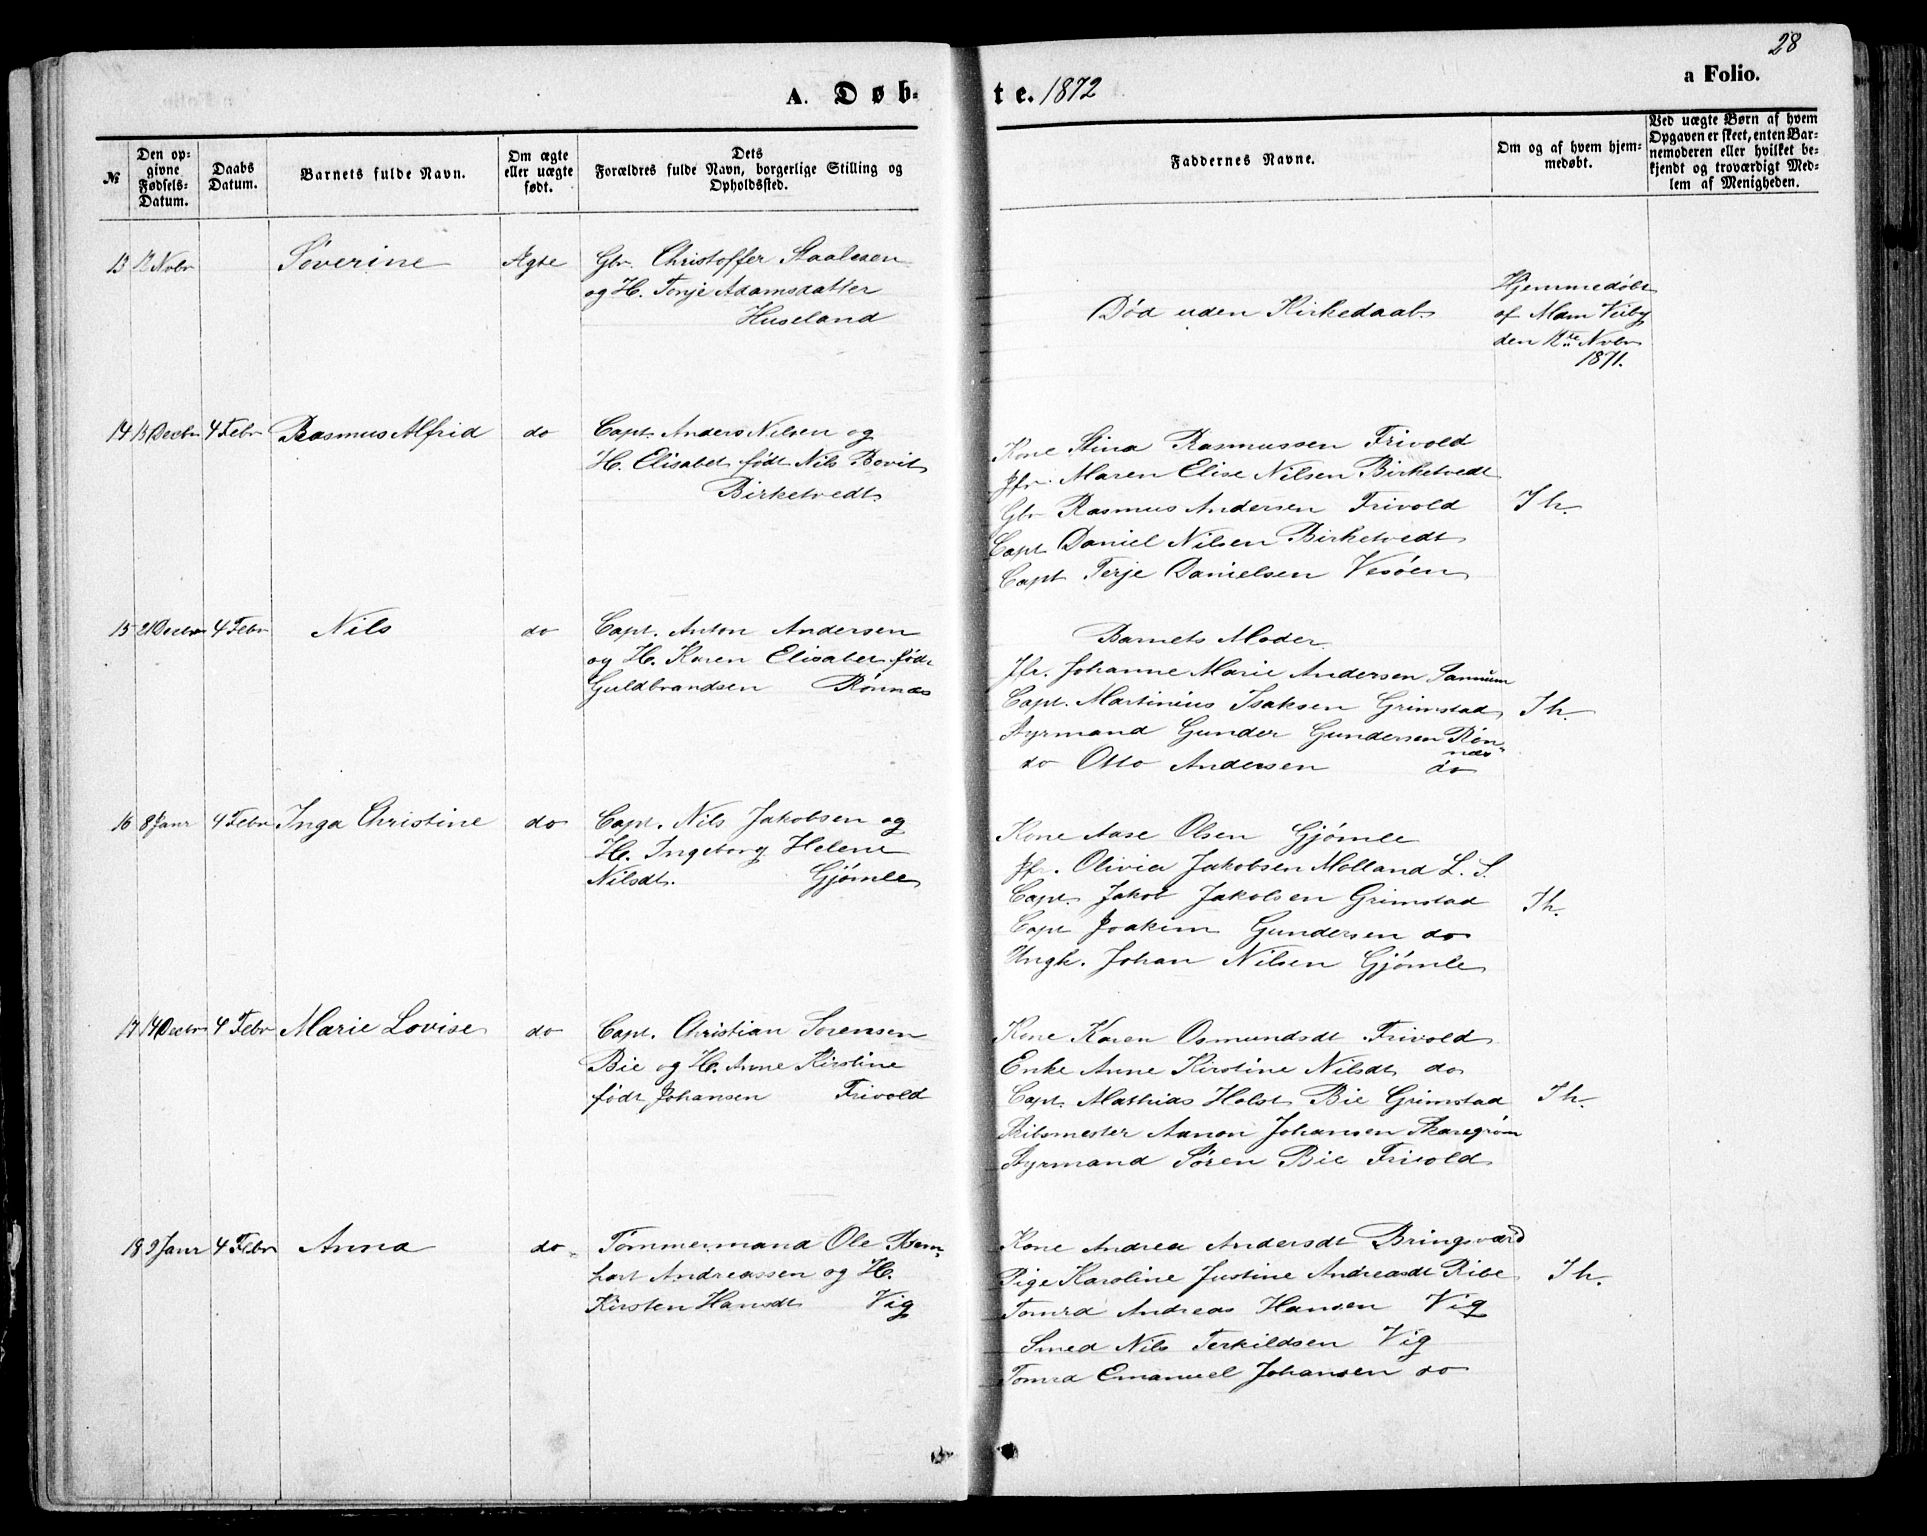 28
A. Døb-
te. 1872
a Folio.
№
Den op-
givne
Fødsels-
Datum.
Daabs
Datum.
Barnets fulde Navn.
Om ægte
eller uægte
født.
Dets
Forældres fulde Navn, borgerlige Stilling og
Opholdssted.
Faddernes Navne.
Om og af hvem hjem-
medøbt.
Ved uægte Børn af hvem
Opgaven er skeet, enten Bar-
nemoderen eller hvilket be-
kjendt og troværdigt Med-
lem af Menigheden.
13 12 Novbr Søverine Ægte Gbr. Christoffer Staalesen
og H. Tonje Adamsdatter
Huseland
Død uden Kirkedaab
Hjemmedøbt
af Mam Verby
den 12te Novbr
1871.
14 13 Decbr 4 Febr Rasmus Alfrid do Capt. Anders Nilsen og
H. Elisabet født Nils Bovit
Birketvedt
Kone Stina Rasmussen Frivold
Jfr. Maren Elise Nilsen Birketvedt
Gbr Rasmus Andersen Frivold Ih.
Capt Daniel Nilsen Birketvedt
Capt Terje Danielsen Vesøen
15 21 Decbr 4 Febr Nils do Capt. Anton Andersen
og H. Karen Elisabet født
Guldbrandsen Rønnes
Barnets Moder
Jfr. Johanne Marie Andersen Sannum
Capt. Martinius Isaksen Grimstad Ih.
Styrmand Gunder Gundersen Røn-
nes
do Otto Andersen do
16 8 Janr 4 Febr Inga Christine do Capt. Nils Jakobsen og
H. Ingeborg Helene
Nilsdt. Gjømle
Kone Aase Olsen Gjømle
Jfr. Olivia Jakobsen Molland L. S.
Capt. Jakob Jakobsen Grimstad Ih.
Capt Joakim Gundersen do
Ungk. Johan Nilsen Gjømle
17 14 Decbr 4 Febr Marie Lovise do Capt. Christian Sørensen
Bie og H. Anne Kirstine
født Johansen Frivold
Kone Karen Osmundsdt Frivold
Enke Anne Kirstine Nilsdt do
Capt. Mathias Holst Bie Grimstad Ih.
Skibsmester Aanon Johansen Skaregrøm
Styrmand Søren Bie Frivold
18 9 Janr 4 Febr Anna do Tømmermand Ole Bern-
hart Andreassen og H.
Kirsten Hansdt Vig
Kone Andrea Andersdt Bringsværd
Pige Karoline Justine Andreasdt Ribe Ih.
Tømrd Andreas Hansen Vig
Smed Nils Terkildsen Vig
Tømrd Emanuel Johansen do